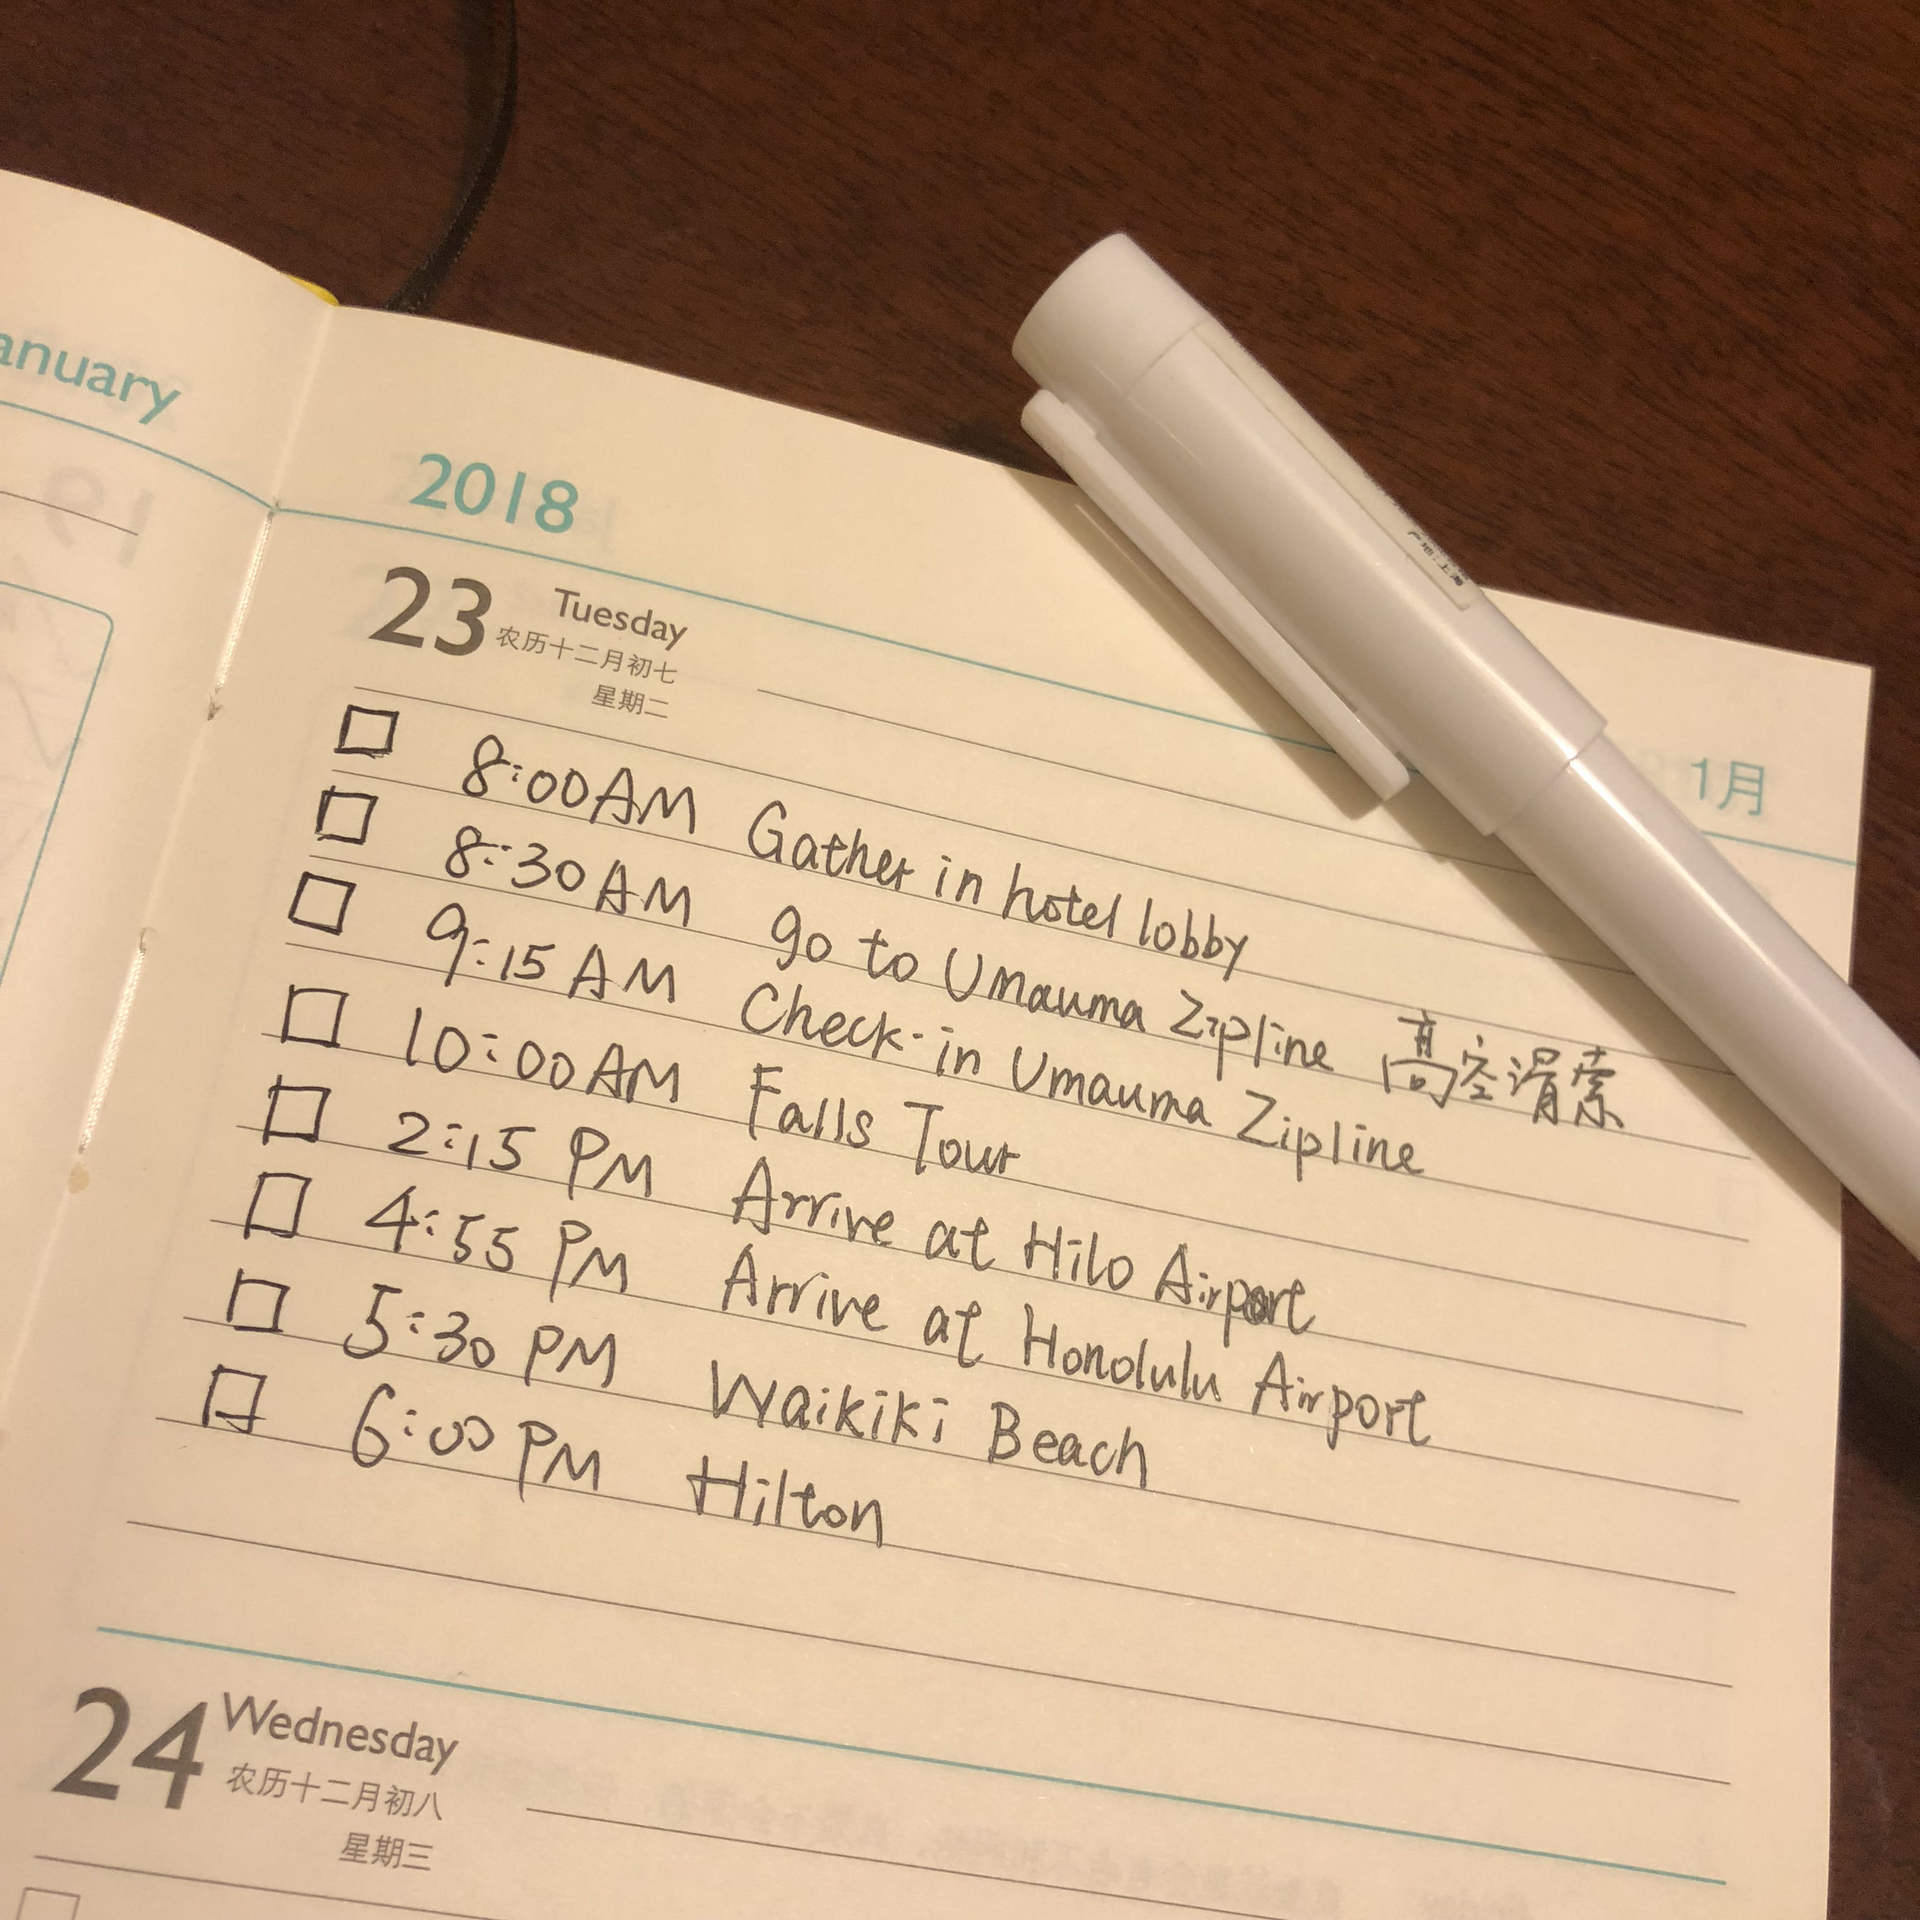 anuary
2018
1月
23 Tuesday
农历十二月初七
星期二
8:00AM Gather in hotel lobby
8:30AM go to Umauma Zipline 高空滑索
9:15AM Check-in Umauma Zipline
10:00AM Falls Tour
2:15 PM Arrive at Hilo Airport
4:55 PM Arrive at Honolulu Airport
5:30 PM Waikiki Beach
6:00 PM Hilton
24 Wednesday
农历十二月初八
星期三
产地:上海